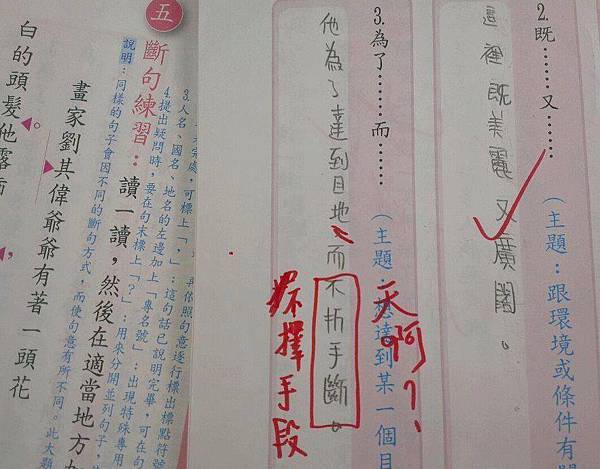 2.既……又……(主題:跟環境或條件有
這裡既美麗又廣闊。
3.為了……而……(主題:想達到某一個目
天啊!
他為了達到目地而不折手斷。
不擇手段
依照句意逐行標出標點符號
處,可標上「,」;這句話已說明完畢,可在句
3.人名、國名、地名的左邊加上「專名號」;出現特殊專用
4.提出疑問時,要在句末標上「?」;用來分開並列句子,
五 斷句練習:讀一讀,然後在適當地方加
說明:同樣的句子會因不同的斷句方式,而使句意有所不同。此大題
畫家劉其偉爺爺有著一頭花
白的頭髮他露